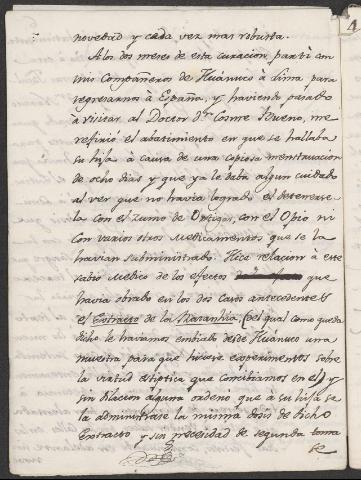 novedad y cada vez mas robusta.
A los dos meses de esta curacion, partì con
mis Compañeros de Huánuco à Lima, para
regresarnos à España, y haviendo pasado
à visitar al Doctor dn. Cosme Bueno, me
refiriò el abatimiento en que se hallaba
su hija à causa de una copiosa menstruacion
de ocho dias y que ya le daba algun cuidado
al ver que no havia logrado el detenerse-
la con el zumo de Ortigas, con el Opio ni
con varios otros Medicamentos que se la
havian subministrado. Hice relacion à este
sabio Medico de los efectos que
havia obrado en los dos casos antecedentes
el Extracto de la Maranhia, (del qual como queda
dicho le haviamos embiado desde Huánuco una
muestra para que hiciese experimentos sobre
la virtud estiptica que concibiamos en el) y
sin dilacion alguna ordeno que à su hija se
la administrase la misma dosis de dicho
Extracto y sin necesidad de segunda toma
se